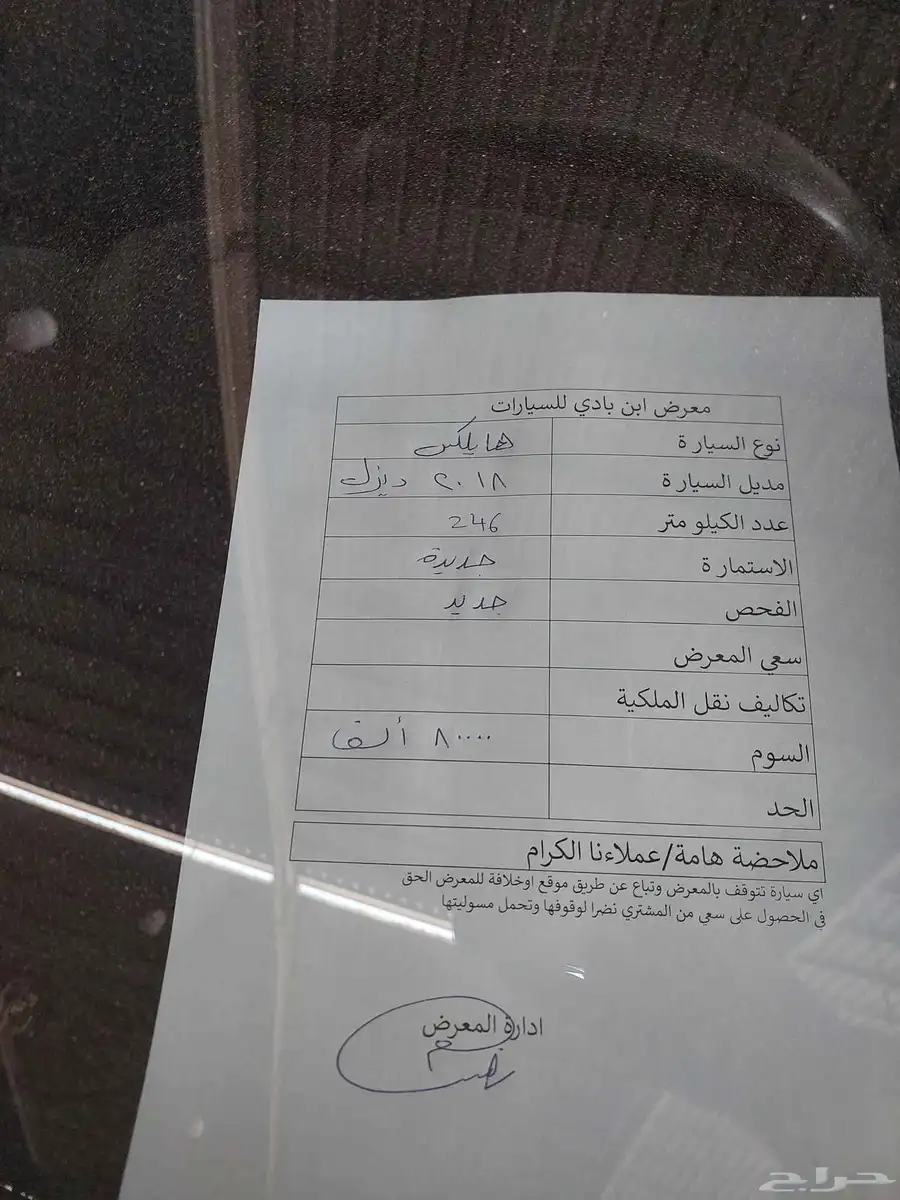 معرض ابن بادي للسيارات
نوع السيارة هايلكس
مديل السيارة ٢٠١٨ ديزل
عدد الكيلو متر 246
الاستمارة جديدة
الفحص جديد
سعي المعرض
تكاليف نقل الملكية
السوم ٨٠٠٠٠ ألف
الحد
ملاحضة هامة/عملاءنا الكرام
اي سيارة تتوقف بالمعرض وتباع عن طريق موقع اوخلافة للمعرض الحق
في الحصول على سعي من المشتري نضرا لوقوفها وتحمل مسوليتها
ادارة المعرض
حراج